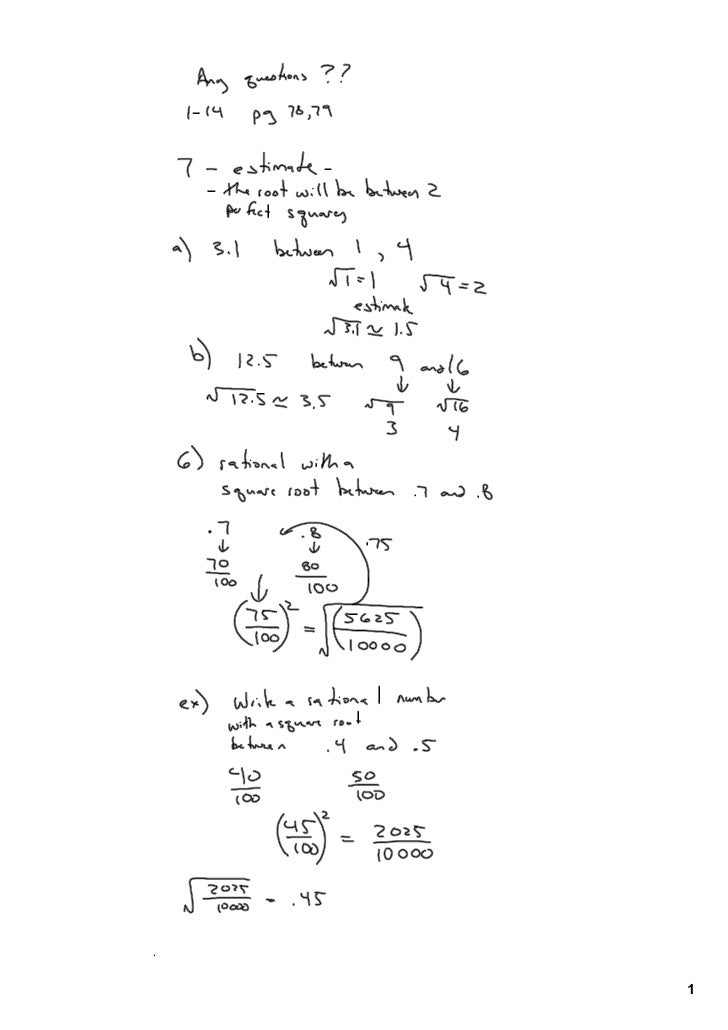 Any questions ??
1-14 pg 78,79
7 - estimate -
- the root will be between 2
perfect squares
a) 3.1 between 1 , 4
√1 = 1 √4 = 2
estimate
√3.1 ≃ 1.5
b) 12.5 between 9 and 16
√12.5 ≃ 3.5 √9 √16
3 4
6) rational with a
square root between .7 and .8
.7 .8 .75
70/100 80/100
(75/100)² = √(5625/10000)
ex) Write a rational number
with a square root
between .4 and .5
40/100 50/100
(45/100)² = 2025/10000
√2025/10000 = .45
1